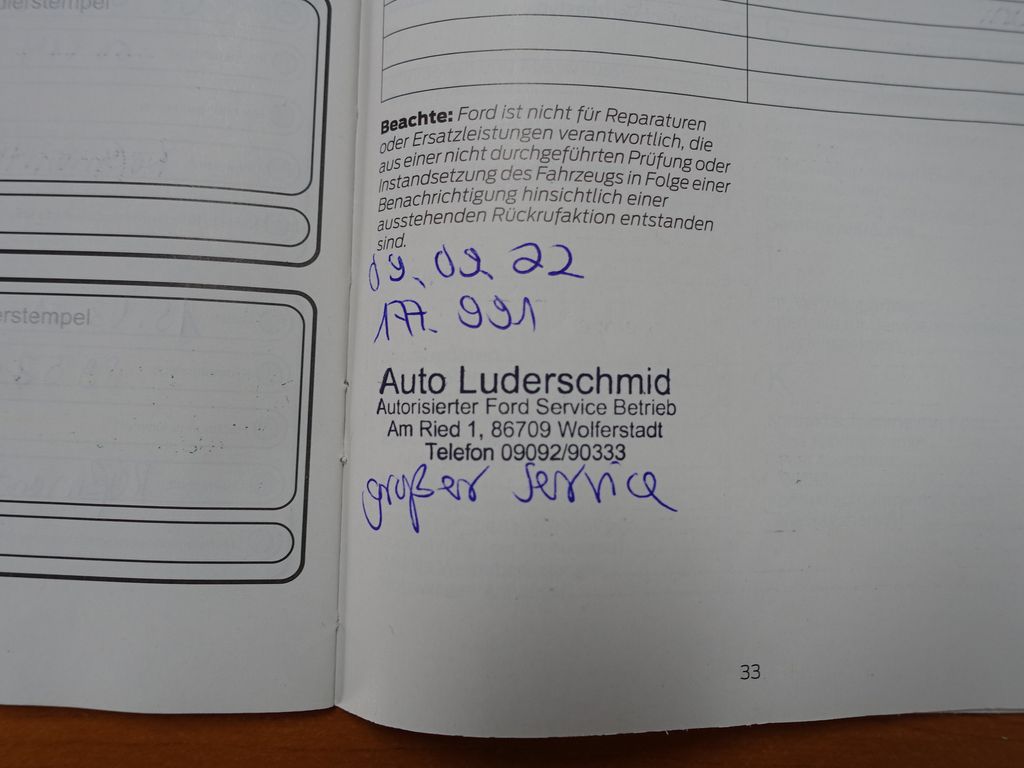 erstempel
Beachte: Ford ist nicht für Reparaturen
oder Ersatzleistungen verantwortlich, die
aus einer nicht durchgeführten Prüfung oder
Instandsetzung des Fahrzeugs in Folge einer
Benachrichtigung hinsichtlich einer
ausstehenden Rückrufaktion entstanden
sind.
09.02.22
177.991
Auto Luderschmid
Autorisierter Ford Service Betrieb
Am Ried 1, 86709 Wolferstadt
Telefon 09092/90333
großer Service
erstempel
33